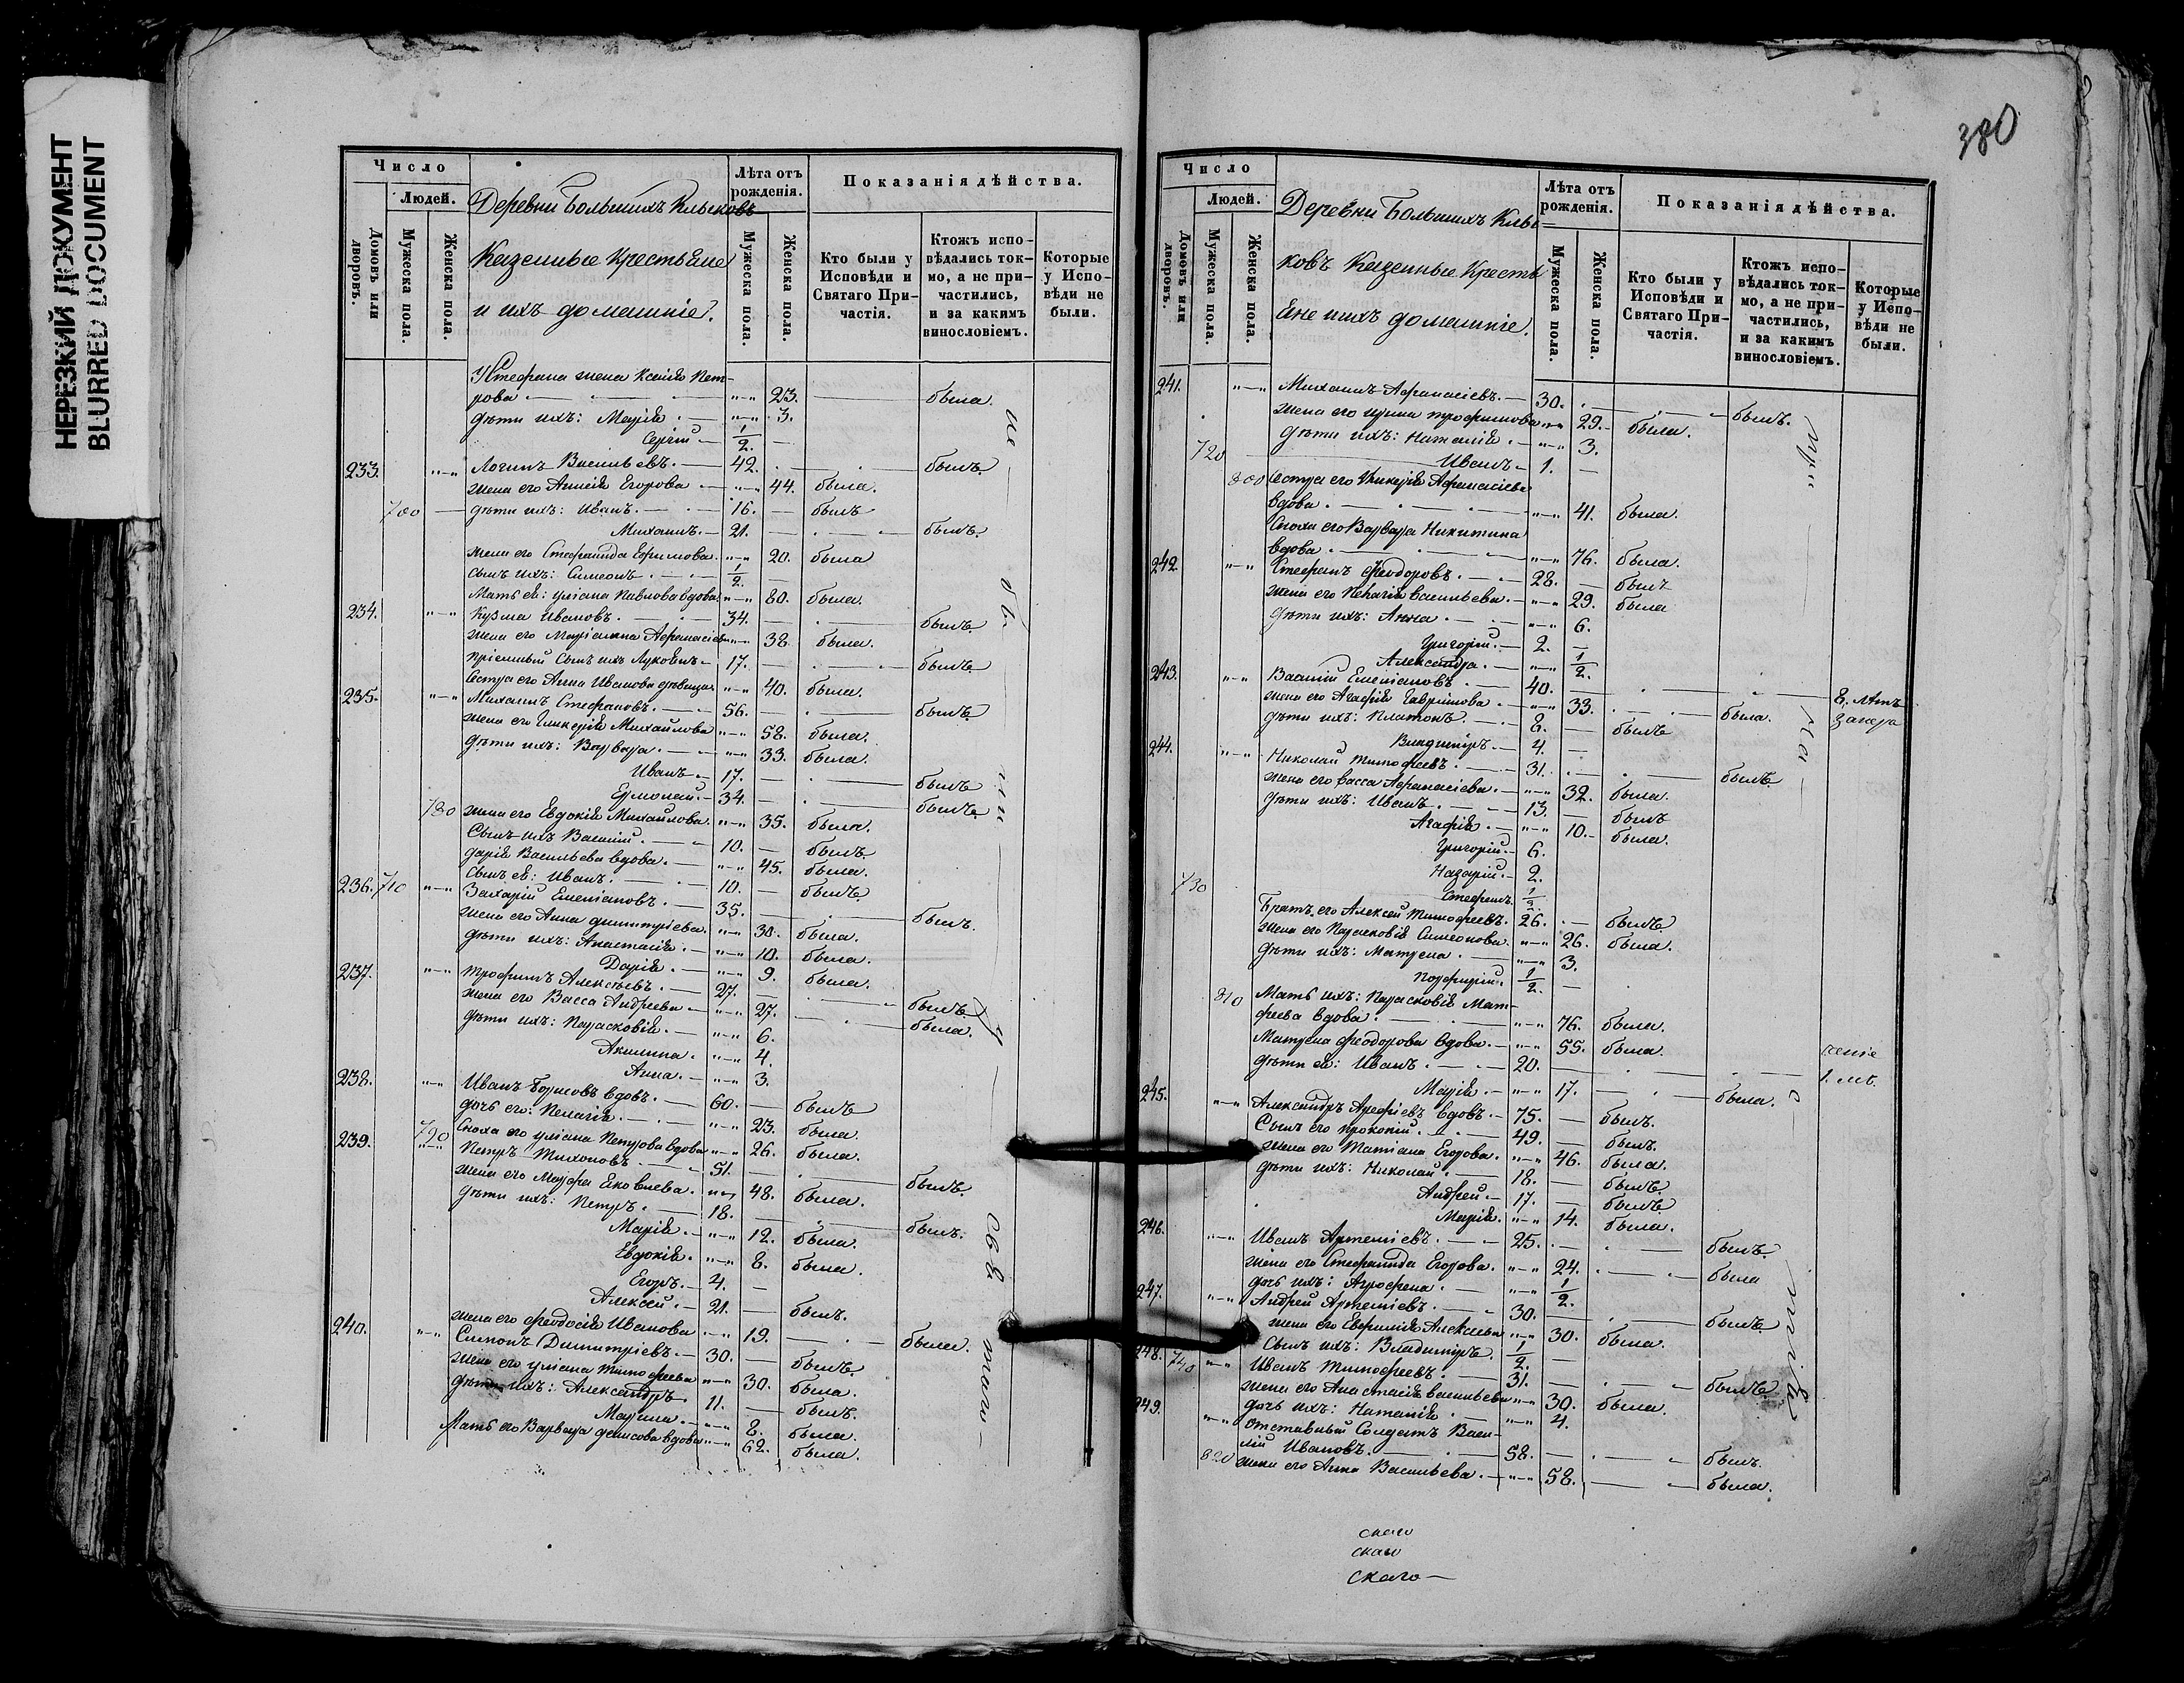 НЕРЕЗКИЙ ДОКУМЕНТ
BLURRED DOCUMENT
Число
Людей.
Домовъ или дворовъ.
Мужеска пола.
Женска пола.
Деревни Большихъ Клыковъ
Казенные Крестьяне
и ихъ домашніе.
Лѣта отъ рожденія.
Мужеска пола.
Женска пола.
Показанія дѣйства.
Кто были у Исповѣди и Святаго Причастія.
Ктожъ исповѣдались токмо, а не причастились, и за какимъ винословіемъ.
Которые у Исповѣди не были.
У Стефана жена Ксенія Пет-
рова 23. была.
дѣти ихъ: Марія 3.
Сергій 1/2.
233. Логинъ Васильевъ. 42. былъ.
жена его Аннсія Егорова 44. была.
700 дѣти ихъ: Иванъ. 16. былъ
Михаилъ. 21. былъ.
жена его Стефанида Ефимова. 20. была
сынъ ихъ: Симеонъ. 1/2.
Мать ея: Уліана Павлова вдова. 80. была.
234. Кузма Ивановъ. 34. былъ.
жена его Маріамна Афанасіева 38. была.
пріемный сынъ ихъ Лукоянъ 17. былъ
Сестра его Анна Иванова дѣвица. 40. была.
235. Михаилъ Стефановъ. 56. былъ.
жена его Гликерія Михайлова 58. была.
дѣти ихъ: Варвара. 33. была.
Иванъ. 17. былъ
Ермолай. 34. былъ.
780 жена его Евдокія Михайлова. 35. была.
Сынъ ихъ Василій. 10. былъ.
Дарія Васильева вдова. 45. была.
Сынъ ея: Иванъ. 10. былъ.
236. 710 Захарій Емеліановъ. 35. былъ.
жена его Анна Димитріева. 30. была.
дѣти ихъ: Анастасія. 10. была.
Дарія. 9. была.
237. Трофимъ Алексѣевъ. 27. былъ.
жена его Васса Андреева 27. была.
дѣти ихъ: Параскевія. 6.
Акилина. 4.
Анна. 3.
238. Иванъ Борисовъ вдовъ. 60. былъ
дочь его: Пелагія. 23. была.
790 Сноха его Уліана Петрова вдова 26. была.
239. Петръ Тихоновъ. 51. былъ.
жена его Марфа Яковлева. 48. была.
дѣти ихъ: Петръ. 18. былъ.
Марія. 12. была.
Евдокія. 8. была.
Егоръ. 4.
Алексей. 21. былъ.
жена его Феодосія Иванова 19. была.
240. Симонъ Димитріевъ. 30. былъ.
жена его Уліана Тимофеева 30. была.
дѣти ихъ: Александръ 11. былъ.
Марина. 8. была.
Мать его Варвара Денисова вдова 62. была.
380
Число
Людей.
Домовъ или дворовъ.
Мужеска пола.
Женска пола.
Деревни Большихъ Клы=
ковъ Казенные Кресть
яне и ихъ домашніе.
Лѣта отъ рожденія.
Мужеска пола.
Женска пола.
Показанія дѣйства.
Кто были у Исповѣди и Святаго Причастія.
Ктожъ исповѣдались токмо, а не причастились, и за какимъ винословіемъ.
Которые у Исповѣди не были.
241. Михаилъ Афанасіевъ. 30. былъ.
жена его Ирина Трофимова 29. была.
дѣти ихъ: Наталія. 3.
720 Иванъ 1.
800 Сестра его Гликерія Афанасіева
вдова. 41. была.
Сноха его Варвара Никитина
вдова. 76. была.
242 Стефанъ Феодоровъ. 28. былъ
жена его Пелагія Васильева. 29. была
дѣти ихъ: Анна. 6.
Григорій. 2.
Александра. 1/2.
243. Василій Емеліановъ. 40. 8. лѣтъ
жена его Агафія Гаврилова. 33. была.
дѣти ихъ: Платонъ. 8. былъ
Владиміръ. 4.
244. Николай Тимофеевъ. 31. былъ.
жена его Васса Афанасіева. 32. была.
дѣти ихъ: Иванъ. 13. былъ
Агафія. 10. была.
Григорій. 6.
Назарій. 2.
730 Стефанъ. 1/2.
Братъ его Алексей Тимофеевъ. 26. былъ
жена его Параскевія Симеонова. 26. была.
дѣти ихъ: Матрена. 3.
Порфирій. 1/2.
810 Мать ихъ: Параскевія Мат-
феева вдова. 76. была.
Матрена Феодорова вдова. 55. была.
дѣти ея: Иванъ. 20. 1. лѣ.
Марія. 17. была.
245. Александръ Арефіевъ вдовъ. 75. былъ.
Сынъ его Прокопій. 49. былъ.
жена его Татіана Егорова. 46. была.
дѣти ихъ: Николай. 18. былъ.
Андрей. 17. былъ
Марія. 14. была.
246. Иванъ Артеміевъ. 25. былъ.
жена его Стефанида Егорова. 24. была
дочь ихъ: Агрофена. 1/2.
247. Андрей Артеміевъ. 30. былъ.
жена его Евфимія Алексиева 30. была.
Сынъ ихъ: Владиміръ. 1/2.
248. 740 Иванъ Тимофеевъ. 31. былъ.
жена его Анастасія Васильева 30. была.
дочь ихъ: Наталія 4.
249. Отставный Солдатъ Васи-
лій Ивановъ. 58. былъ.
820 жена его Анна Васильева. 58. была.
скаго
скаго
скаго